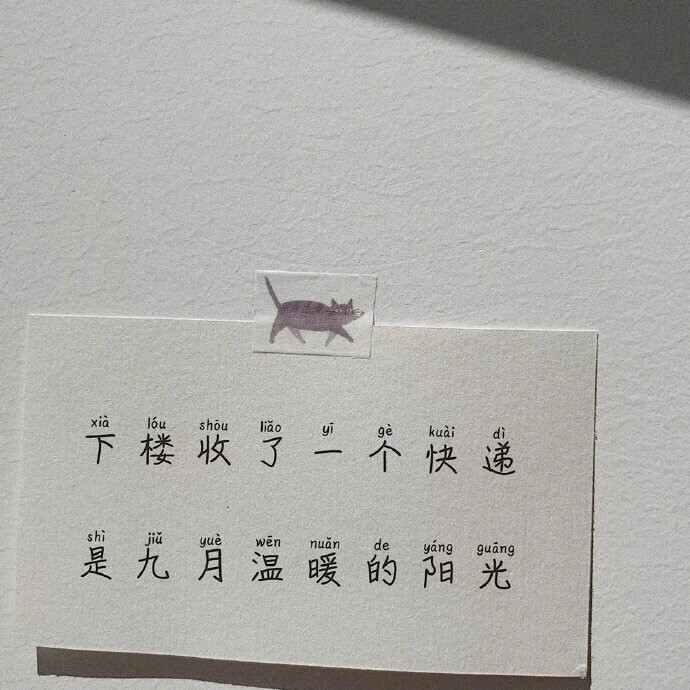 xià lóu shōu liǎo yī gè kuài dì
下楼收了一个快递
shì jiǔ yuè wēn nuǎn de yáng guāng
是九月温暖的阳光